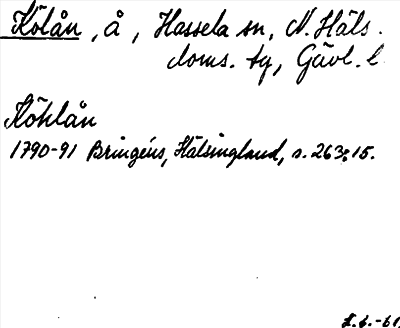 Kölån, å, Hassela sn, N. Häls.
doms. tg, Gävl. l.
Köhlån
1790-91 Bringéus, Hälsingland, s. 263:15.